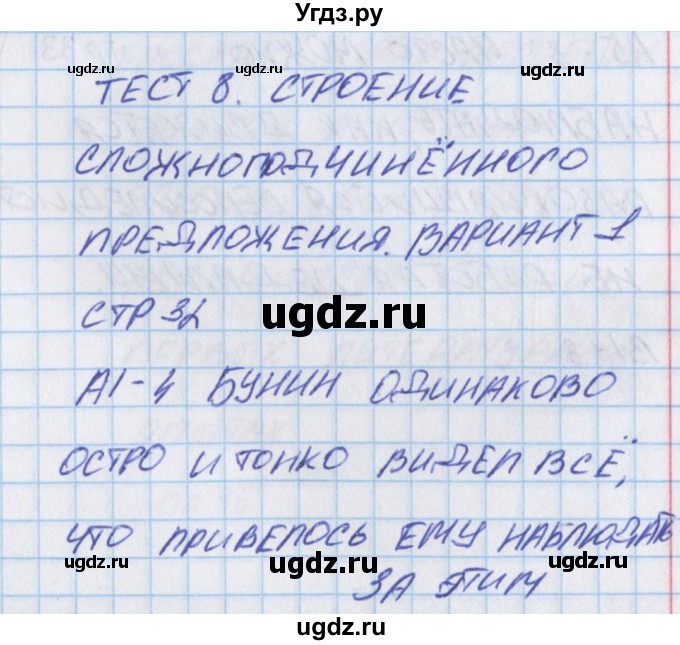 Угдз.ру
ТЕСТ 8. СТРОЕНИЕ
СЛОЖНОПОДЧИНЁННОГО
ПРЕДЛОЖЕНИЯ. ВАРИАНТ 1
СТР 32
А1-4 БУНИН ОДИНАКОВО
ОСТРО И ТОНКО ВИДЕЛ ВСЁ,
ЧТО ПРИВЕЛОСЬ ЕМУ НАБЛЮДАТЬ
ЗА ЭТИМ
ugdz.ru
ugdz.ru
ugdz.ru
ugdz.ru
ugdz.ru
ugdz.ru
ugdz.ru
ugdz.ru
ugdz.ru
ugdz.ru
ugdz.ru
ugdz.ru
ugdz.ru